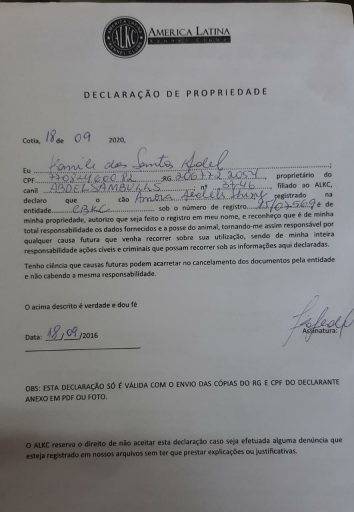 ALKC
AMERICA LATINA
KENNEL CLUB
DECLARAÇÃO DE PROPRIEDADE
Cotia, 18 de 09 2020,
Eu Kamila dos Santos Adel
CPF RG proprietário do
canil nº filiado ao ALKC,
declaro que o cão registrado na
entidade CBKC sob o número de registro é de
minha propriedade, autorizo que seja feito o registro em meu nome, e reconheço que é de minha
total responsabilidade os dados fornecidos e a posse do animal, tornando-me assim responsável por
qualquer causa futura que venha recorrer sobre sua utilização, sendo de minha inteira
responsabilidade ações cíveis e criminais que possam recorrer sob as informações aqui declaradas.
Tenho ciência que causas futuras podem acarretar no cancelamento dos documentos pela entidade
e não cabendo a mesma responsabilidade.
O acima descrito é verdade e dou fé
Data: 18/09/2016
Assinatura:
OBS: ESTA DECLARAÇÃO SÓ É VÁLIDA COM O ENVIO DAS CÓPIAS DO RG E CPF DO DECLARANTE
ANEXO EM PDF OU FOTO.
O ALKC reserva o direito de não aceitar esta declaração caso seja efetuada alguma denúncia que
esteja registrado em nossos arquivos sem ter que prestar explicações ou justificativas.